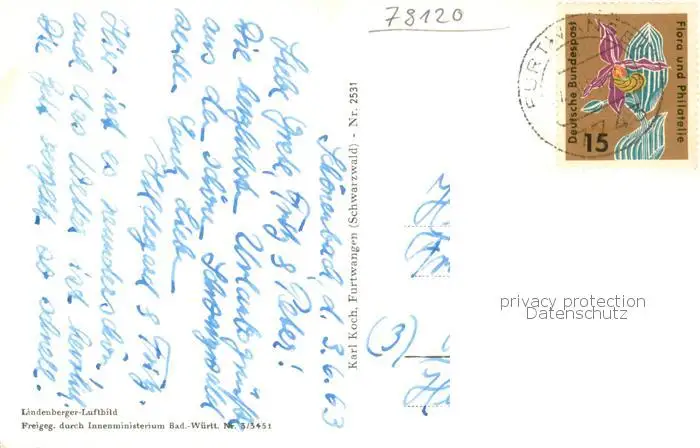 78120
Schönenbach, d. 3.6.63
Liebe Grete, Fritz & Peter!
Die herzlichsten Urlaubsgrüße
aus dem schönen Schwarzwald
sendet Euch Liebe
Hildegard & Fritz.
Hier ist es wunderschön
und das Wetter ist herrlich.
Die Zeit vergeht so schnell.
Karl Koch, Furtwangen (Schwarzwald) - Nr. 2531
Lindenberger-Luftbild
Freigeg. durch Innenministerium Bad.-Württ. Nr. 3/3451
(3)
FURTWANGEN
Deutsche Bundespost
15
Flora und Philatelie
privacy protection
Datenschutz